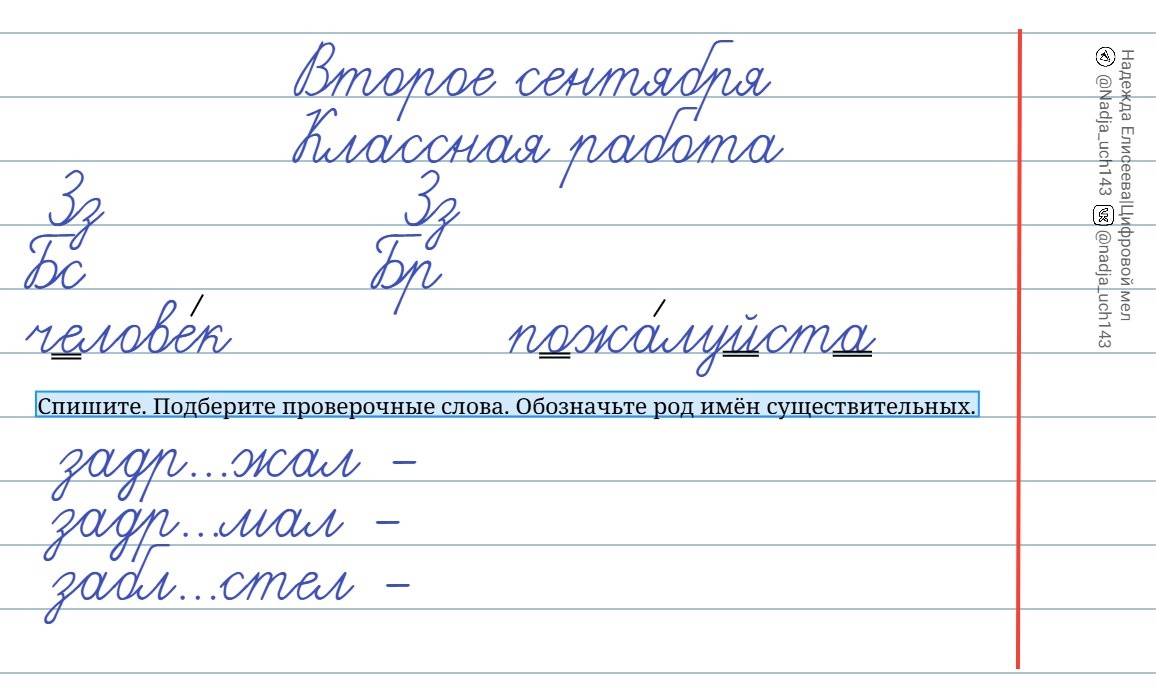 Второе сентября
Классная работа
Зз Зз
Бс Бр
челове́к пожа́луйста
Спишите. Подберите проверочные слова. Обозначьте род имён существительных.
задр...жал –
задр...мал –
забл...стел –
Надежда Елисеева|Цифровой мел
@Nadja_uch143 @nadja_uch143